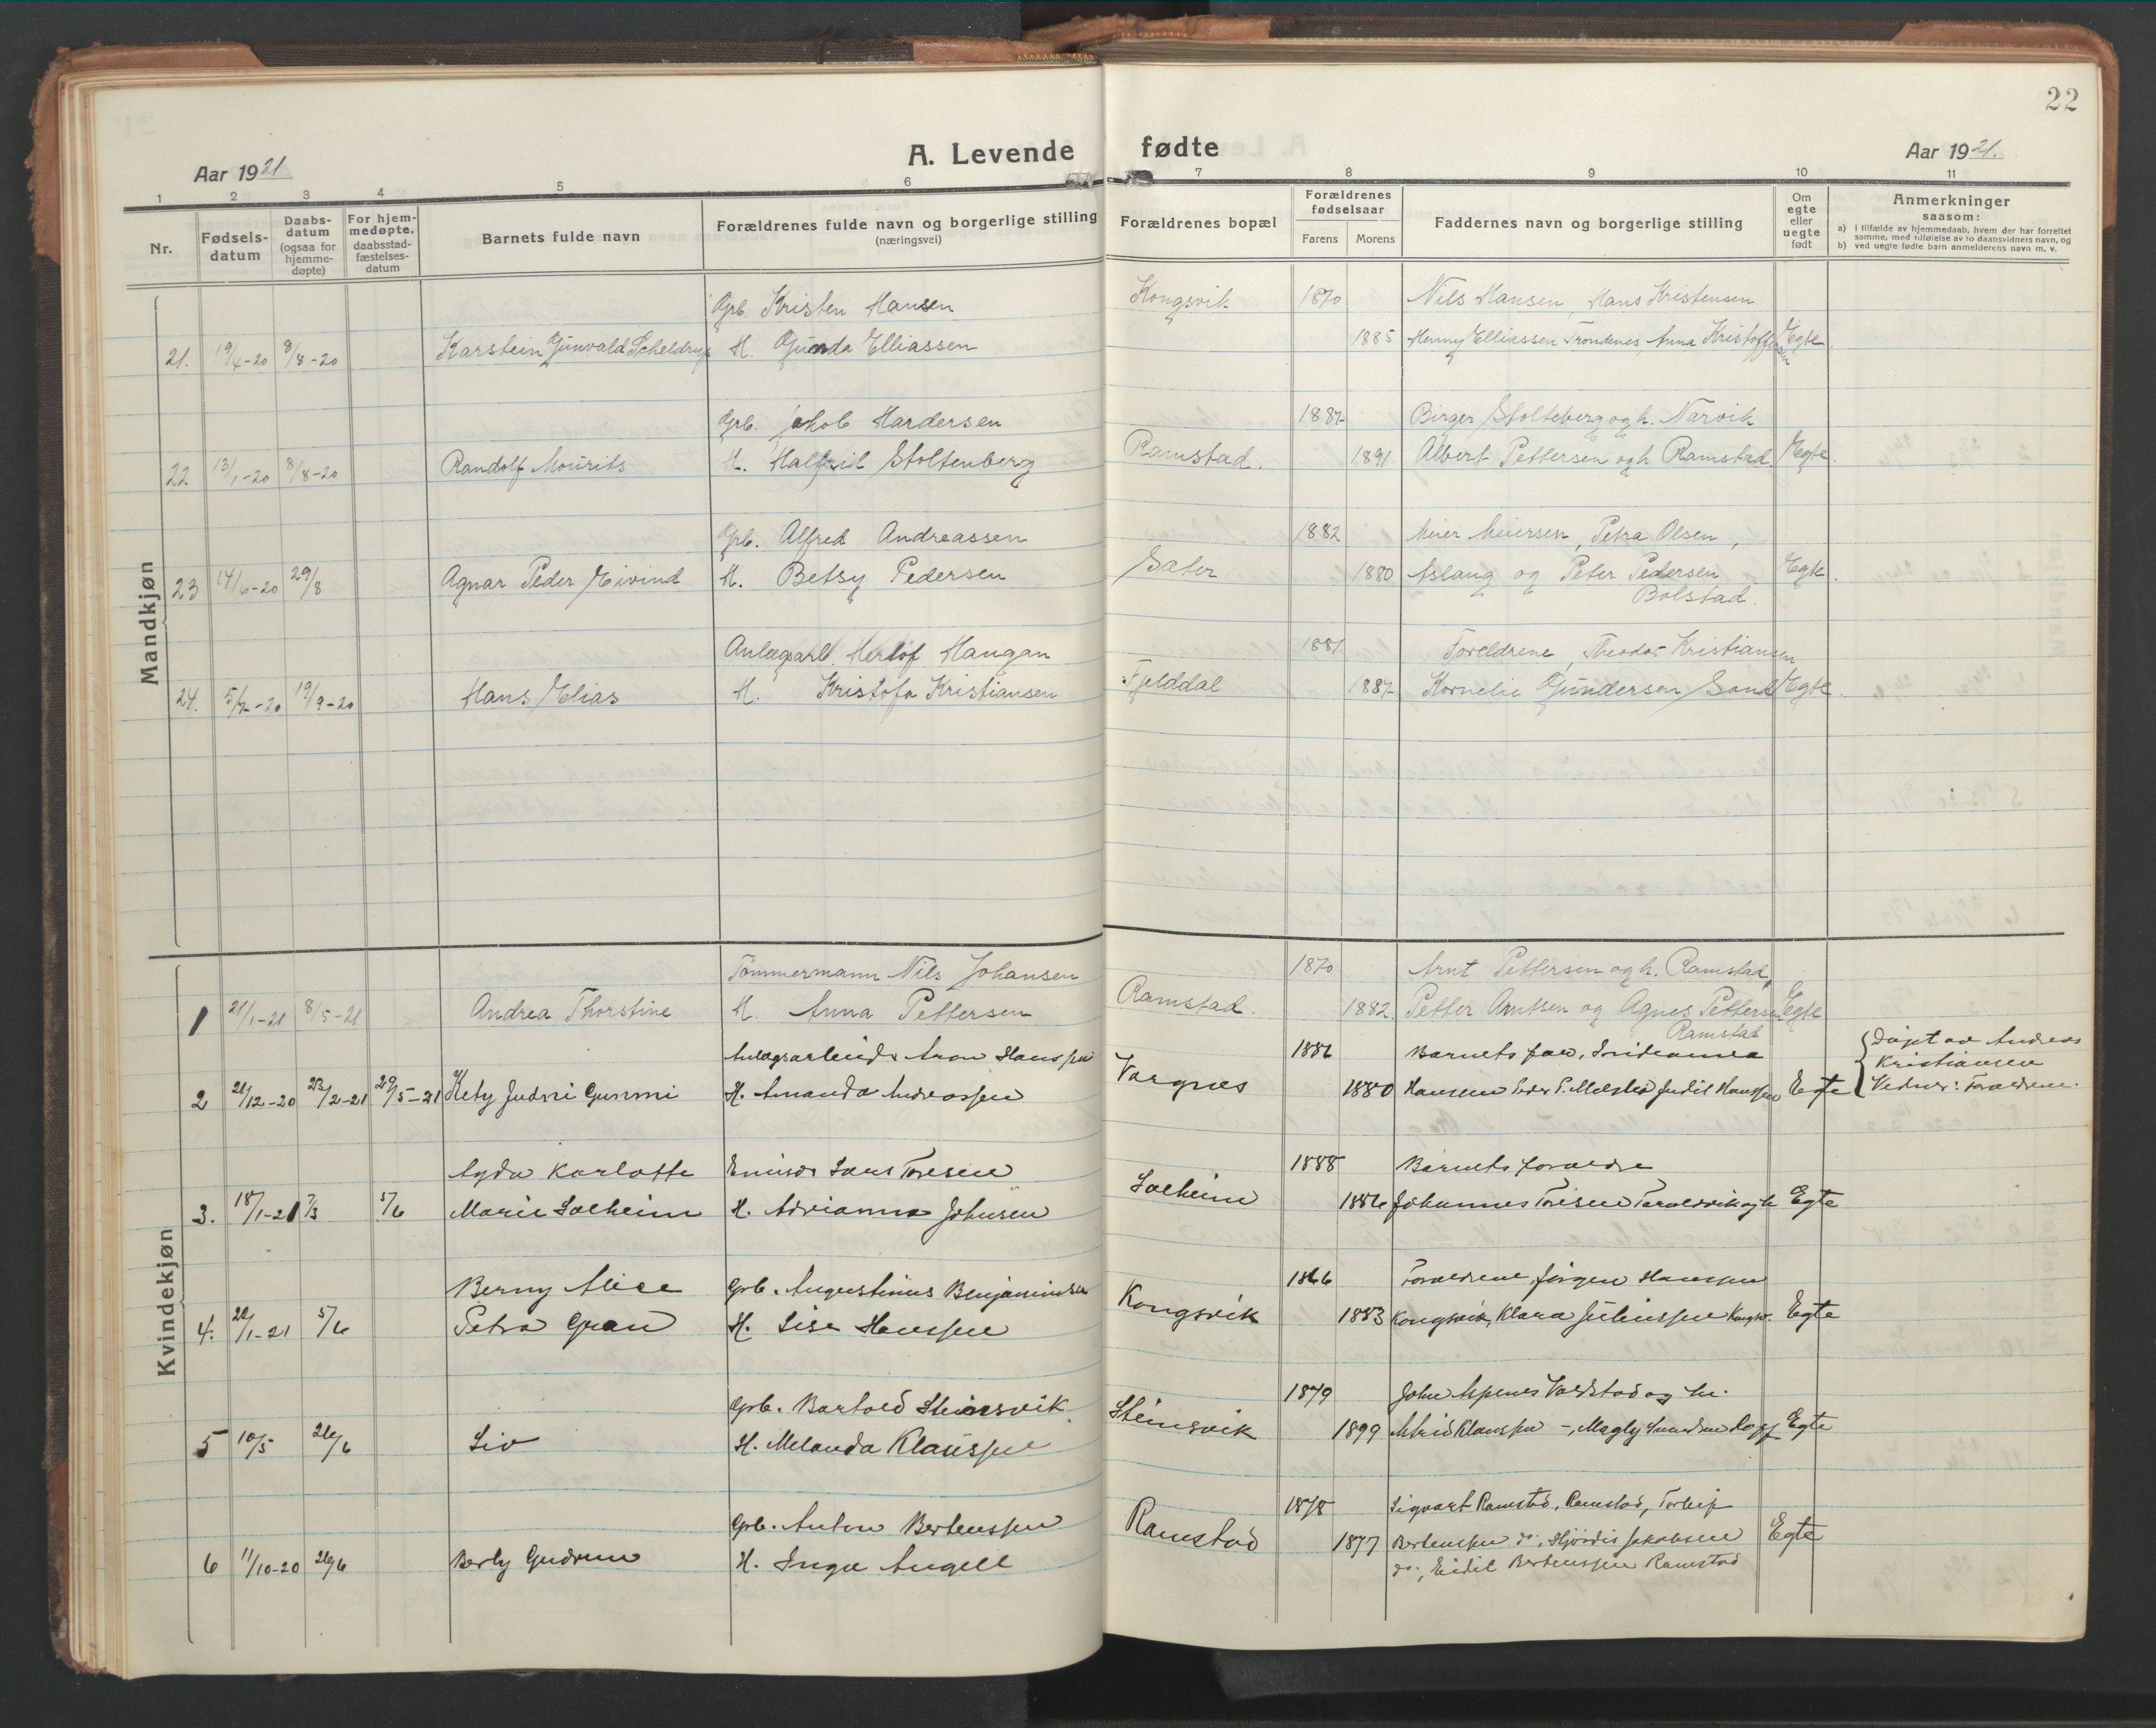 22
A. Levende fødte
Aar 1921
Aar 1921.
1 2 3 4 5 6 7 8 9 10 11
Nr.
Fødsels-
datum
Daabs-
datum
(ogsaa for
hjemme-
døpte)
For hjem-
medøpte.
daabsstad-
fæstelses-
datum
Barnets fulde navn
Forældrenes fulde navn og borgerlige stilling
(næringsvei)
Forældrenes bopæl
Forældrenes
fødselsaar
Farens Morens
Faddernes navn og borgerlige stilling
Om
egte
eller
uegte
født
Anmerkninger
saasom:
a) i tilfælde av hjemmedaab, hvem der har forrettet
samme, med tilføielse av to daabsvidners navn, og
b) ved uegte fødte barn anmelderens navn m. v.
Mandkjøn
Grb. Kristen Hansen Kongsvik 1870 Nils Hansen, Hans Kristensen
21. 19/4-20 8/8-20 Karstein Gunvald Scheldrup H. Gunda Elliassen 1885 Henny Elliassen Trondenes, Anna Kristoffersen Egte.
Grb. Jakob Hardersen 1887 Birger Stolteberg og h. Narvik
22 13/1-20 8/8-20 Randolf Mourits H. Halfrid Stoltenberg Ramstad. 1891 Albert Pettersen og h Ramstad. Egte.
Grb. Alfred Andreassen 1882 Meier Meiersen, Petra Olsen,
23 14/6-20 29/8 Agnar Peder Eivind H. Betsy Pedersen Sater 1880 Aslaug og Peter Pedersen Egte.
Bolstad.
Anlægsarb. Herlof Haugan 1881 Foreldrene, Theodor Kristiansen
24. 19/9-20 Hans Elias H. Kristofa Kristiansen Fjelddal 1887 Kornelie Gundersen Sand Egte.
Kvindekjøn
Tømmermann Nils Johansen 1870 Arnt Pettersen og h. Ramstad,
1 21/1-21 8/5-21 Andrea Thorstine H. Anna Pettersen Ramstad. 1882. Petter Arntsen og Agnes Pettersen Egte
Ramstad
Anlægsarbeider Aron Hanssen 1886 Barnets
2 21/12-20 23/2-21 29/5-21 Kety Judni Gunmi H. Amanda Andreassen Vargnes 1880 Hansen Peder P. Judit Hanssen Egte
Døpt av Andreas
Kristiansen
Vidner: Forældrene.
Agda Karlotte Lars Toresen 1888 Barnets forældre
3. 18/1-21 7/3 5/6 Marie Solheim H. Adrianna Johnsen Solheim 1886 Johannes Toresen og h Egte
Berny Alice Grb. Augustinus Benjaminsen 1866 Forældrene, Jørgen Hanssen
4. 22/1-21 5/6 Petra Gran H. Lise Hanssen Kongsvik 1883 Kongsvik, Klara Juliussen Kongsv. Egte
Grb. Bartold Steinsvik 1879 John Aspenes Voldstad og hr.
5 10/5 26/6 Liv H. Melanda Klaussen Steinsvik 1899 Astrid Klaussen -, Magly Egte
Grb. Anton Bertenssen 1878 Sigvart Ramstad, Ramstad, Torleif
6 11/10-20 26/6 Berly Gudrun H. Inga Angell Ramstad 1877 Bertenssen do., Hjørdis Jakobsen Egte
do., Eidil Bertenssen Ramstad